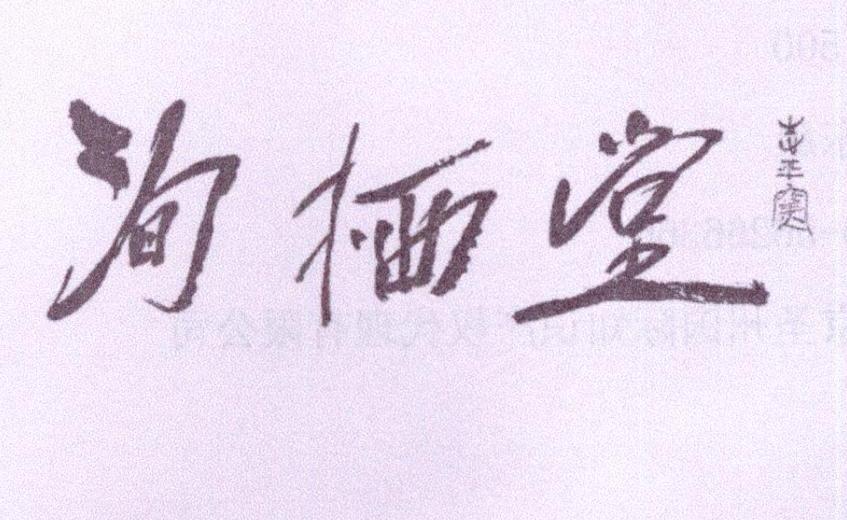 洵栖堂